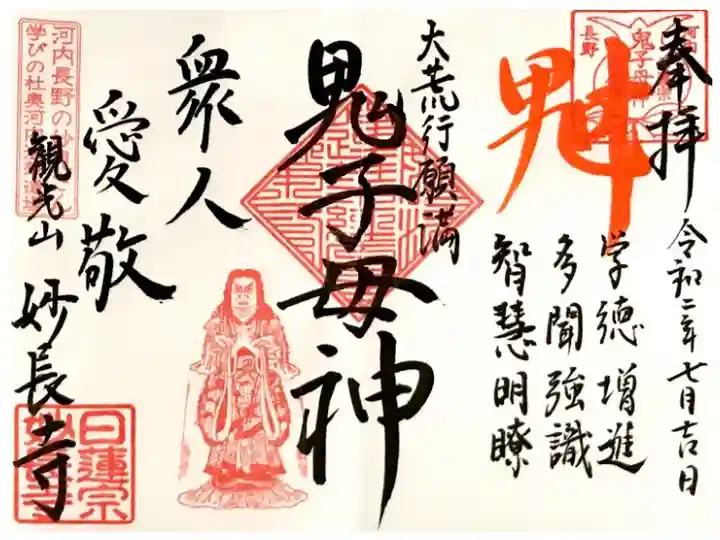 奉拝
令和二年七月吉日
魁
学徳増進
多聞強識
智慧明瞭
大荒行願満
鬼子母神
衆人
愛敬
観光山 妙長寺
河内長野の
学びの社奥河内
長野
鬼子母神
日蓮宗
妙長寺